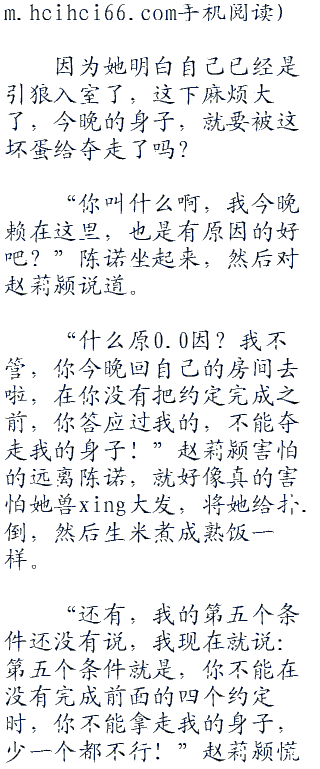 m.hcihci66.com手机阅读)
因为她明白自己已经是
引狼入室了，这下麻烦大
了，今晚的身子，就要被这
坏蛋给夺走了吗？
“你叫什么啊，我今晚
赖在这里，也是有原因的好
吧？”陈诺坐起来，然后对
赵莉颖说道。
“什么原0.0因？我不
管，你今晚回自己的房间去
啦，在你没有把约定完成之
前，你答应过我的，不能夺
走我的身子！”赵莉颖害怕
的远离陈诺，就好像真的害
怕她兽xing大发，将她给扑.
倒，然后生米煮成熟饭一
样。
“还有，我的第五个条
件还没有说，我现在就说：
第五个条件就是，你不能在
没有完成前面的四个约定
时，你不能拿走我的身子，
少一个都不行！”赵莉颖慌